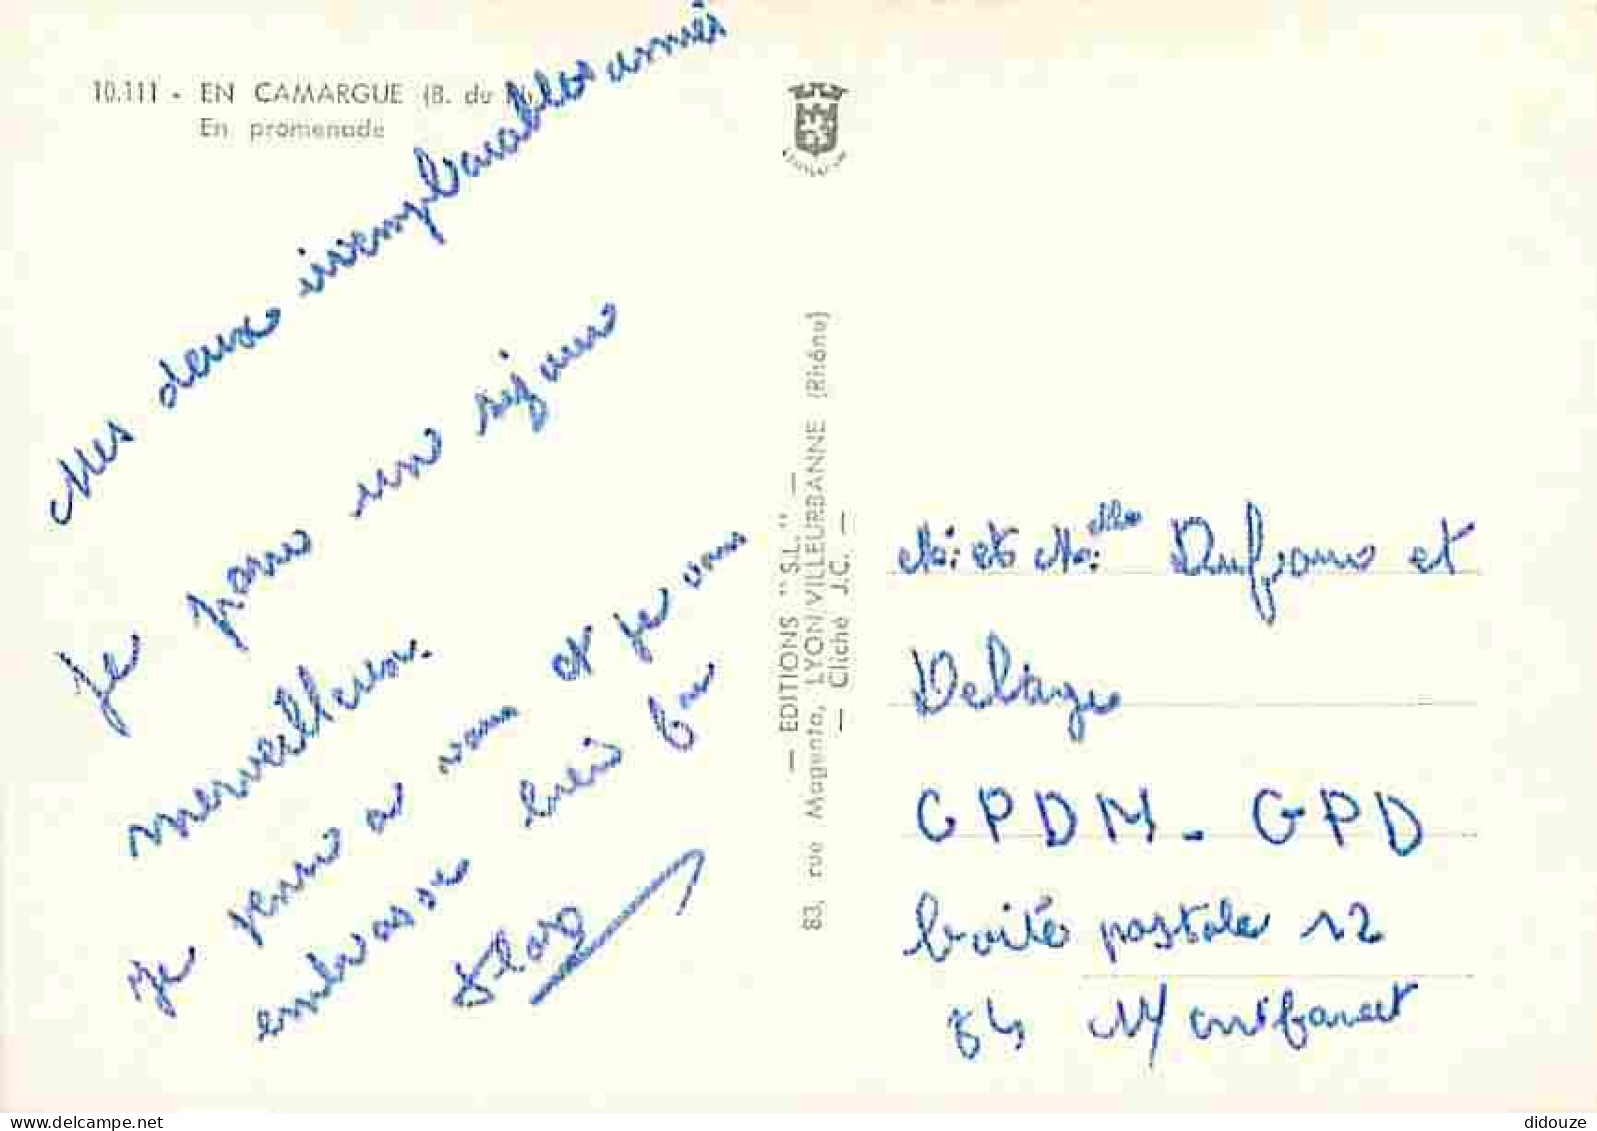 10.111 - EN CAMARGUE (B. du
En promenade
Mes deux inseparables amies
Je passe un séjour
merveilleux.
je pense a vous et je vous
embrasse bien fort
— EDITIONS "S.L." —
83, rue Magenta, LYON/VILLEURBANNE (Rhône)
— Cliché J.C. —
et
Delage
GPDM - GPD
boite postale 12
84 Montfavet
delcampe.net
didouze